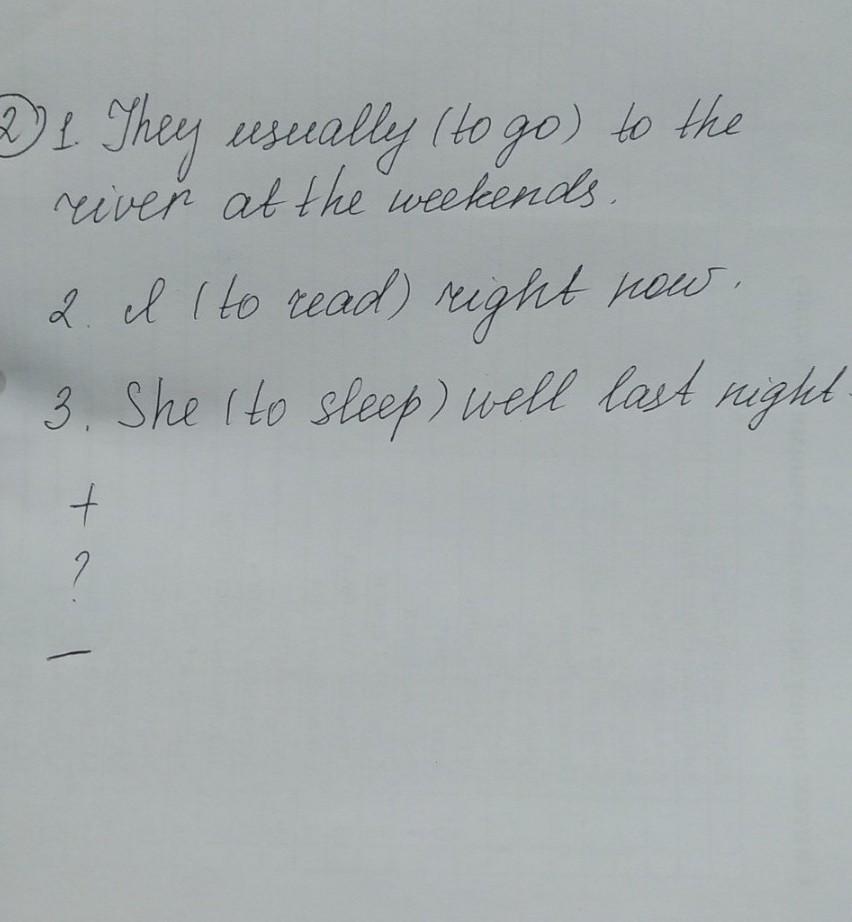 2) 1. They usually (to go) to the
river at the weekends.
2. I (to read) right now.
3. She (to sleep) well last night.
+
?
—